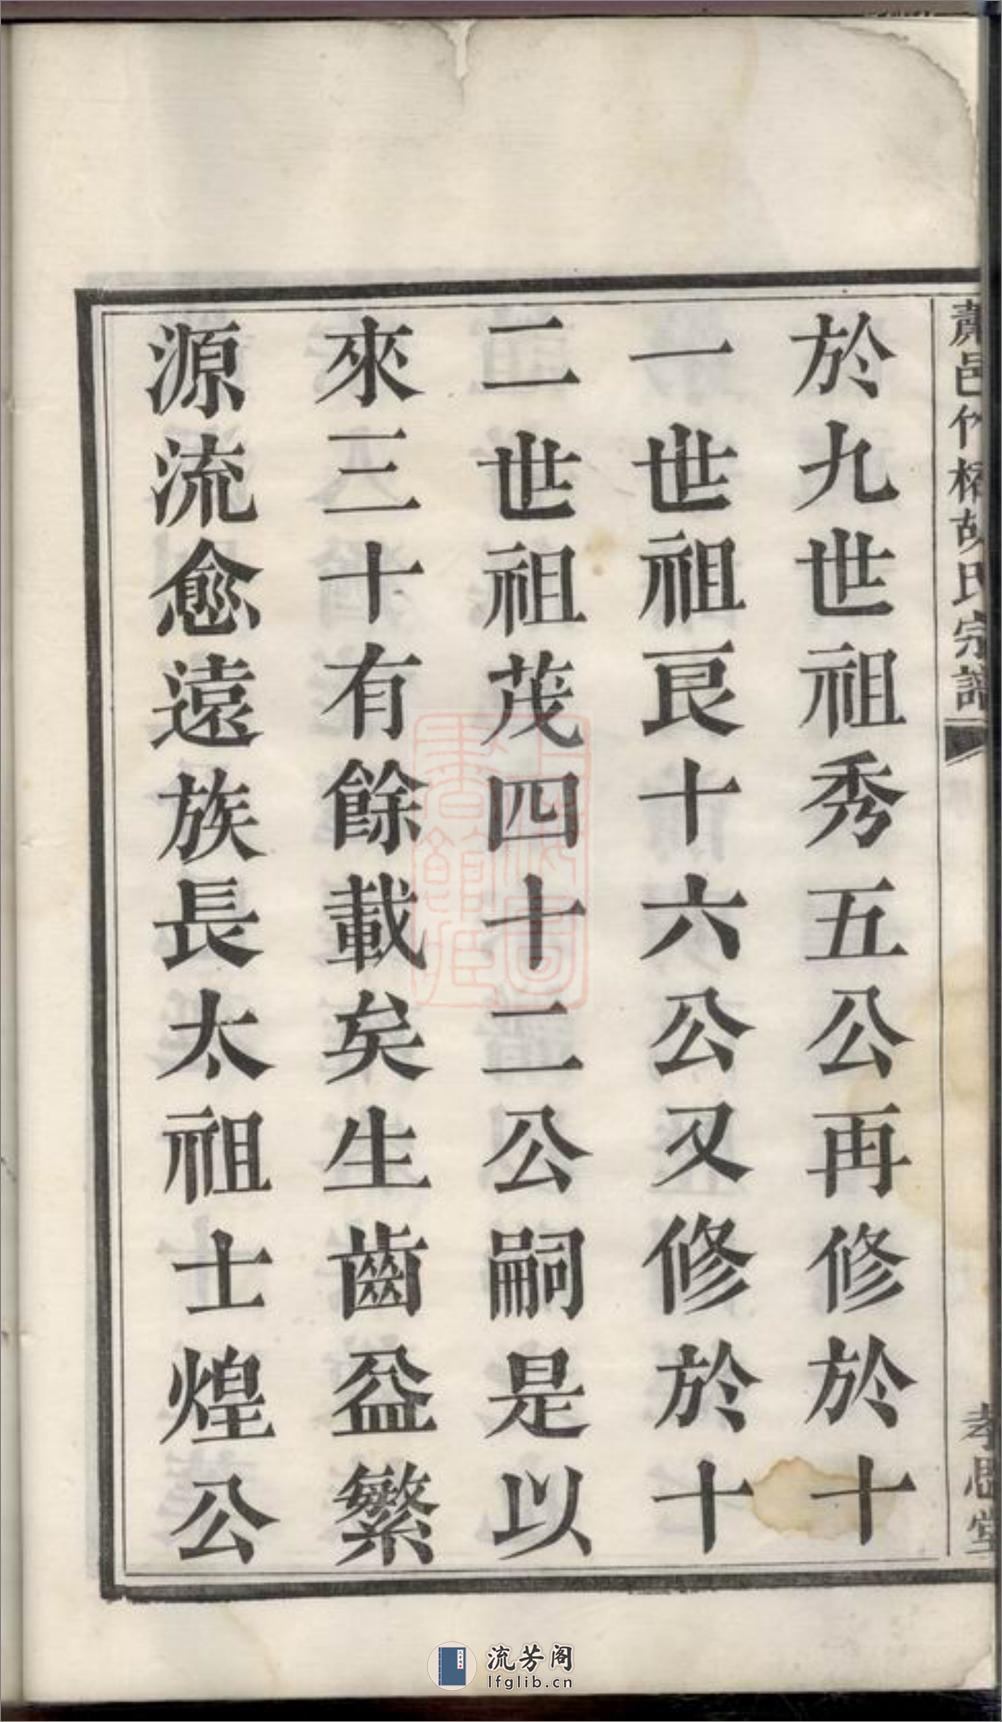 蕭邑竹橋胡氏宗譜
孝思堂
於九世祖秀五公再修於十
一世祖良十六公又修於十
二世祖茂四十二公嗣是以
來三十有餘載矣生齒益繁
源流愈遠族長太祖士煌公
流芳阁
lfglib.cn